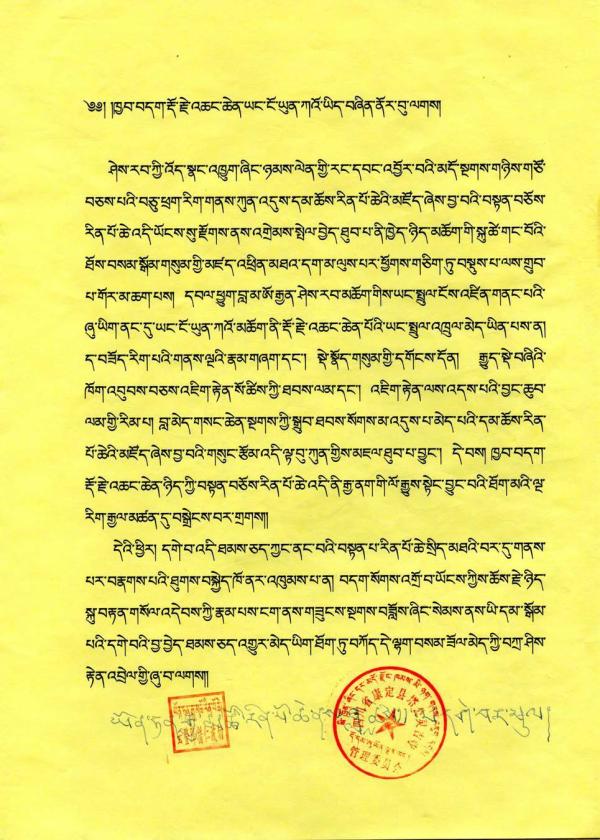 ༄༅། །ཁྱབ་བདག་རྡོ་རྗེ་འཆང་ཆེན་ཡང་ངོ་ཡུན་ཀའོ་ཡིད་བཞིན་ནོར་བུ་ལགས།
ཤེས་རབ་ཀྱི་འོད་སྣང་འཁྱུག་ཞིང་ཉམས་ལེན་གྱི་རང་དབང་འབྱོར་བའི་མདོ་སྔགས་གཉིས་གཙོ་
བཅས་པའི་བཅུ་ཕྲག་རིག་གནས་ཀུན་འདུས་དམ་ཆོས་རིན་པོ་ཆེའི་མཛོད་ཞེས་བྱ་བའི་བསྟན་བཅོས་
རིན་པོ་ཆེ་འདི་ཡོངས་སུ་རྫོགས་ནས་འགྲེམས་སྤེལ་བྱེད་ཐུབ་པ་ནི་ཁྱེད་ཉིད་མཆོག་གི་སྐུ་ཚེ་གང་བོའི་
ཐོས་བསམ་སྒོམ་གསུམ་གྱི་མཛད་འཕྲིན་མཐའ་དག་མ་ལུས་པར་ཕྱོགས་གཅིག་ཏུ་བསྡུས་པ་ལས་གྲུབ་
པ་གོར་མ་ཆག་པས། དབལ་ཕྱུག་བླ་མ་ཨོ་རྒྱན་ཤེས་རབ་མཆོག་གིས་ཡང་སྤྲུལ་ངོས་འཛིན་གནང་པའི་
ཞུ་ཡིག་ནང་དུ་ཡང་ངོ་ཡུན་ཀའོ་མཆོག་ནི་རྡོ་རྗེ་འཆང་ཆེན་པོའི་ཡང་སྤྲུལ་འཁྲུལ་མེད་ཡིན་པས་ན།
ད་བཟོད་རིག་པའི་གནས་ལྔའི་རྣམ་གཞག་དང་། སྡེ་སྣོད་གསུམ་གྱི་དགོངས་དོན། རྒྱུད་སྡེ་བཞིའི་
ཁོག་འབུབས་བཅས་འཇིག་རྟེན་སོ་ཚིས་ཀྱི་ཐབས་ལམ་དང་། འཇིག་རྟེན་ལས་འདས་པའི་བྱང་ཆུབ་
ལམ་གྱི་རིམ་པ། བླ་མེད་གསང་ཆེན་སྔགས་ཀྱི་སྒྲུབ་ཐབས་སོགས་མ་འདུས་པ་མེད་པའི་དམ་ཆོས་རིན་
པོ་ཆེའི་མཛོད་ཞེས་བྱ་བའི་གསུང་རྩོམ་འདི་ལྟ་བུ་ཀུན་གྱིས་མཇལ་ཐུབ་པ་བྱུང་། དེ་བས། ཁྱབ་བདག་
རྡོ་རྗེ་འཆང་ཆེན་ཉིད་ཀྱི་བསྟན་བཅོས་རིན་པོ་ཆེ་འདི་ནི་རྒྱ་ནག་གི་ལོ་རྒྱུས་སྟེང་བྱུང་བའི་ཐོག་མའི་ལྔ་
རིག་རྒྱལ་མཚན་དུ་བསྒྲེངས་བར་གྲགས།།
དེའི་ཕྱིར། དགེ་བ་འདི་ཐམས་ཅད་ཀྱང་ནང་བའི་བསྟན་པ་རིན་པོ་ཆེ་སྲིད་མཐའི་བར་དུ་གནས་
པར་བརྣགས་པའི་ཐུགས་བསྐྱེད་ཁོ་ནར་འཁུམས་པ་ན། བདག་སོགས་འགྲོ་བ་ཡོངས་ཀྱིས་ཆོས་རྗེ་ཉིད་
སྐུ་བརྟན་གསོལ་འདེབས་ཀྱི་རྣམ་པས་ངག་ནས་གཟུངས་སྔགས་བཟློས་ཞིང་སེམས་ནས་ཡི་དམ་སྒོམ་
པའི་དགེ་བའི་བྱ་བྱེད་ཐམས་ཅད་འགྱུར་མེད་ཡིག་ཐོག་ཏུ་བཀོད་དེ་ལྷག་བསམ་ཟོལ་མེད་ཀྱི་བཀྲ་ཤིས་
རྟེན་འབྲེལ་གྱི་ཞུ་བ་ལགས།།
省康定县塔
管理委员会